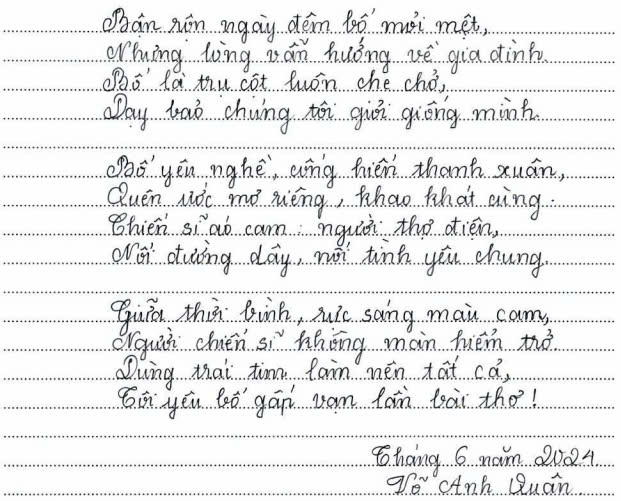 Bận rộn ngày đêm bố mỏi mệt,
Nhưng lòng vẫn hướng về gia đình.
Bố là trụ cột luôn che chở,
Dạy bảo chúng tôi giỏi giống mình.
Bố yêu nghề, cống hiến thanh xuân,
Quên ước mơ riêng, khao khát cùng.
Chiến sĩ áo cam: người thợ điện,
Nối đường dây, nối tình yêu chung.
Giữa thời bình, rực sáng màu cam,
Người chiến sĩ không màn hiểm trở.
Dùng trái tim làm nên tất cả,
Tôi yêu bố gấp vạn lần bài thơ!
Tháng 6 năm 2024
Võ Anh Quân